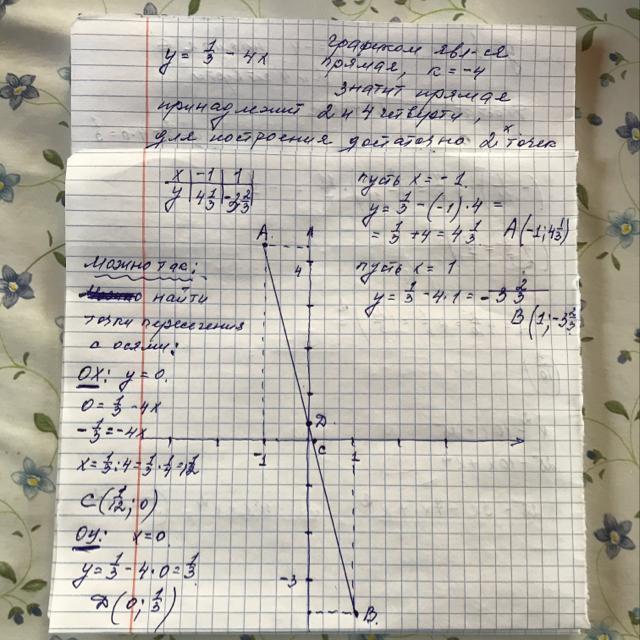 y = 1/3 - 4x
графиком явл-ся
прямая, к = -4
значит прямая
принадлежит 2 и 4 четверти,
для построения достаточно 2ˣ точек
x | -1 | 1
y | 4 1/3 | -3 2/3
пусть x = -1.
y = 1/3 - (-1)·4 =
= 1/3 + 4 = 4 1/3
A(-1; 4 1/3)
пусть x = 1
y = 1/3 - 4·1 = -3 2/3
B(1; -3 2/3)
Можно так:
найти
точки пересечения
с осями:
OX: y = 0.
0 = 1/3 - 4x
-1/3 = -4x
x = 1/3 : 4 = 1/3 · 1/4 = 1/12
C(1/12; 0)
OY: x = 0.
y = 1/3 - 4·0 = 1/3
D(0; 1/3)
A.
4
D.
-1
C
1
-3
B.